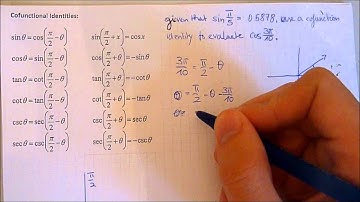 Cofunctional Identities:
sinθ = cos(π/2 − θ)
cosθ = sin(π/2 − θ)
tanθ = cot(π/2 − θ)
cotθ = tan(π/2 − θ)
cscθ = sec(π/2 − θ)
secθ = csc(π/2 − θ)
sin(π/2 + x) = cosx
cos(π/2 + θ) = −sinθ
tan(π/2 + θ) = −cotθ
cot(π/2 + θ) = −tanθ
csc(π/2 + θ) = secθ
sec(π/2 + θ) = −cscθ
π/2
given that sin π/5 = 0.5878, use a cofunction
identity to evaluate cos 3π/10.
3π/10 = π/2 − θ
= π/2 − θ − 3π/10
θ =